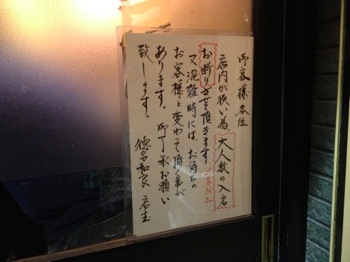 御客様各位
店内が狭い為大人数の入店
お断りさせて頂きます
又混雑時には、お待ちの
お客様と変わって頂く事が
あります。御了承お願い
致します。
店主